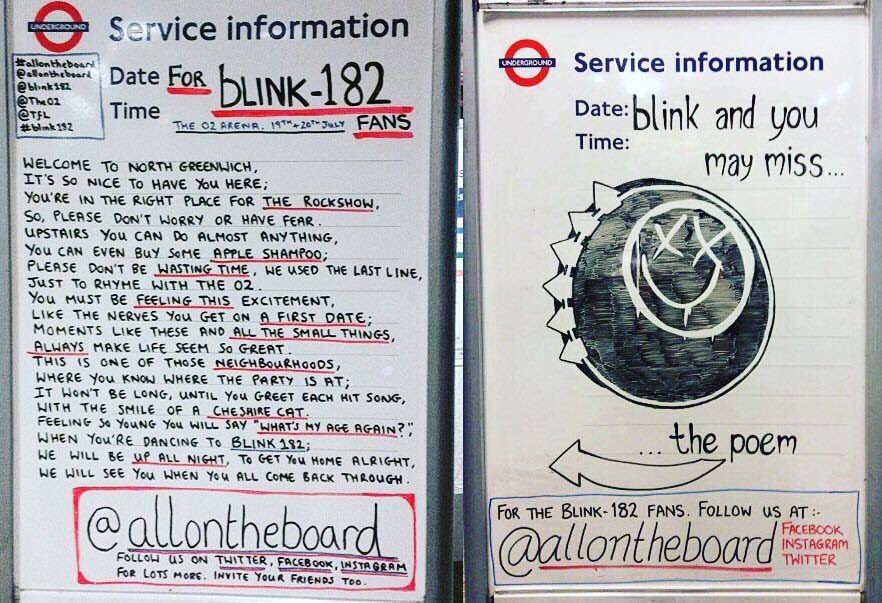 UNDERGROUND
Service information
#allontheboard
@allontheboard
@blink182
@TheO2
@TFL
#blink182
Date FOR BLINK-182
Time THE O2 ARENA. 19TH + 20TH JULY FANS
WELCOME TO NORTH GREENWICH,
IT'S SO NICE TO HAVE YOU HERE;
YOU'RE IN THE RIGHT PLACE FOR THE ROCKSHOW,
SO, PLEASE DON'T WORRY OR HAVE FEAR.
UPSTAIRS YOU CAN DO ALMOST ANYTHING,
YOU CAN EVEN BUY SOME APPLE SHAMPOO;
PLEASE DON'T BE WASTING TIME, WE USED THE LAST LINE,
JUST TO RHYME WITH THE O2.
YOU MUST BE FEELING THIS EXCITEMENT,
LIKE THE NERVES YOU GET ON A FIRST DATE;
MOMENTS LIKE THESE AND ALL THE SMALL THINGS,
ALWAYS MAKE LIFE SEEM SO GREAT.
THIS IS ONE OF THOSE NEIGHBOURHOODS,
WHERE YOU KNOW WHERE THE PARTY IS AT;
IT WON'T BE LONG, UNTIL YOU GREET EACH HIT SONG,
WITH THE SMILE OF A CHESHIRE CAT.
FEELING SO YOUNG YOU WILL SAY "WHAT'S MY AGE AGAIN?",
WHEN YOU'RE DANCING TO BLINK 182;
WE WILL BE UP ALL NIGHT, TO GET YOU HOME ALRIGHT,
WE WILL SEE YOU WHEN YOU ALL COME BACK THROUGH.
@allontheboard
FOLLOW US ON TWITTER, FACEBOOK, INSTAGRAM
FOR LOTS MORE. INVITE YOUR FRIENDS TOO.
UNDERGROUND
Service information
Date: blink and you
Time: may miss...
...the poem
FOR THE BLINK-182 FANS. FOLLOW US AT:-
@allontheboard
FACEBOOK
INSTAGRAM
TWITTER